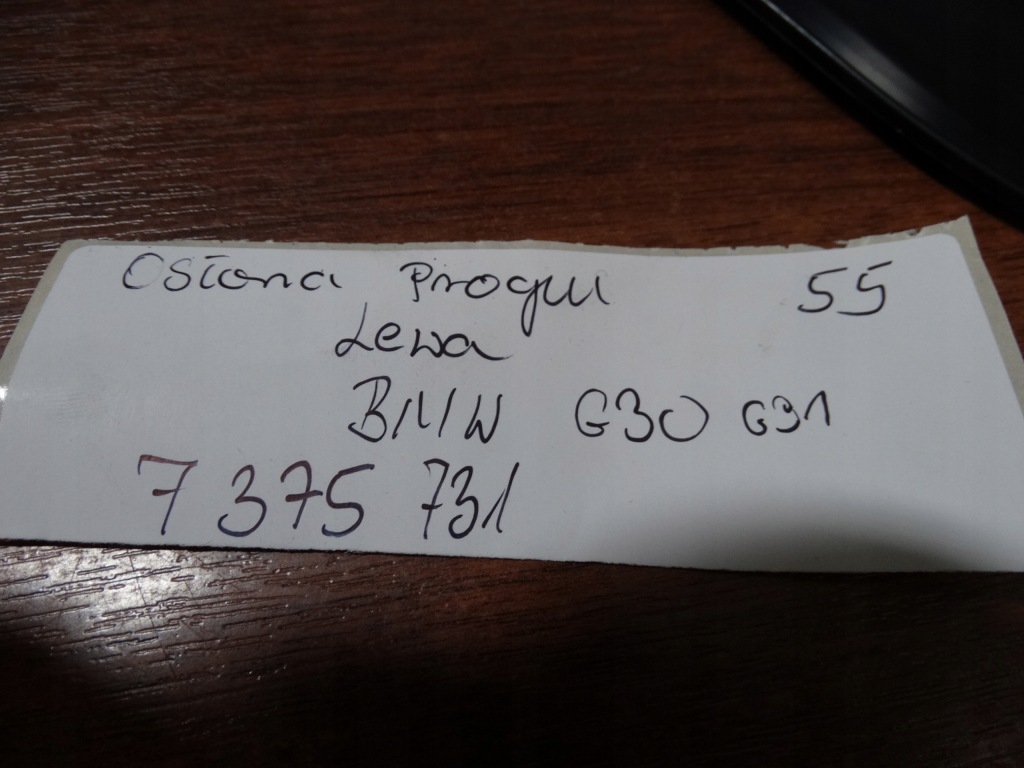 Osłona Progu 55
Lewa
BMW G30 G31
7 375 731